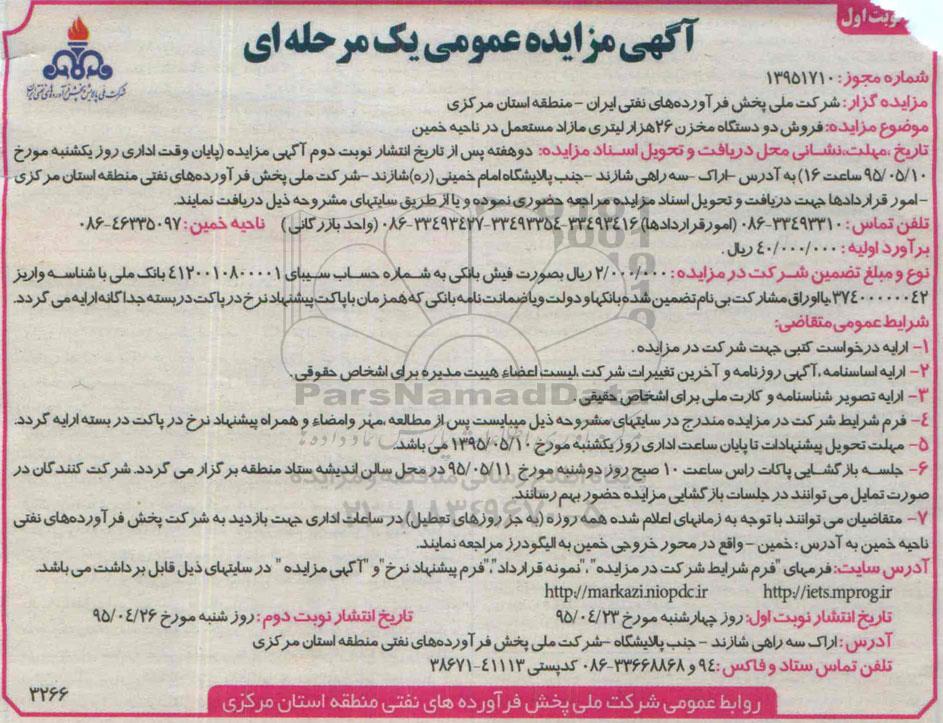 نوبت اول
آگهی مزایده عمومی یک مرحله ای
شرکت ملی پالایش و پخش فرآورده‌های نفتی ایران
شماره مجوز: ۱۳۹۵۱۷۱۰
مزایده گزار: شرکت ملی پخش فرآورده‌های نفتی ایران - منطقه استان مرکزی
موضوع مزایده: فروش دو دستگاه مخزن ۲۶هزار لیتری مازاد مستعمل در ناحیه خمین
تاریخ ،مهلت،نشانی محل دریافت و تحویل اسناد مزایده: دوهفته پس از تاریخ انتشار نوبت دوم آگهی مزایده (پایان وقت اداری روز یکشنبه مورخ
۹۵/۰۵/۱۰ ساعت ۱۶) به آدرس -اراک -سه راهی شازند -جنب پالایشگاه امام خمینی (ره)شازند -شرکت ملی پخش فرآورده‌های نفتی منطقه استان مرکزی
-امور قراردادها جهت دریافت و تحویل اسناد مزایده مراجعه حضوری نموده و یا از طریق سایتهای مشروحه ذیل دریافت نمایند.
تلفن تماس: ۳۳۴۹۳۳۱۰-۰۸۶ (امور قراردادها) ۳۳۴۹۳۴۱۶-۳۳۴۹۳۳۵۴-۳۳۴۹۳۴۲۷-۰۸۶ (واحد بازرگانی) ناحیه خمین: ۴۶۳۳۵۰۹۷-۰۸۶
برآورد اولیه: ۴۰/۰۰۰/۰۰۰ ریال .
نوع و مبلغ تضمین شرکت در مزایده: ۲/۰۰۰/۰۰۰ ریال بصورت فیش بانکی به شماره حساب سیبای ۴۱۲۰۰۱۰۸۰۰۰۰۱ بانک ملی با شناسه واریز
۳۷۴۰۰۰۰۰۰۴۲،یا اوراق مشارکت بی نام تضمین شده بانکها و دولت و یا ضمانت نامه بانکی که همزمان با پاکت پیشنهاد نرخ در پاکت در بسته جداگانه ارایه می گردد.
شرایط عمومی متقاضی:
۱- ارایه درخواست کتبی جهت شرکت در مزایده .
۲- ارایه اساسنامه ،آگهی روزنامه و آخرین تغییرات شرکت ،لیست اعضاء هییت مدیره برای اشخاص حقوقی.
ParsNamadData
۳- ارایه تصویر شناسنامه و کارت ملی برای اشخاص حقیقی .
۴- فرم شرایط شرکت در مزایده مندرج در سایتهای مشروحه ذیل میبایست پس از مطالعه ،مهر وامضاء و همراه پیشنهاد نرخ در پاکت در بسته ارایه گردد.
۵- مهلت تحویل پیشنهادات تا پایان ساعت اداری روز یکشنبه مورخ ۱۳۹۵/۰۵/۱۰ می باشد.
۶- جلسه بازگشایی پاکات راس ساعت ۱۰ صبح روز دوشنبه مورخ ۹۵/۰۵/۱۱ در محل سالن اندیشه ستاد منطقه برگزار می گردد. شرکت کنندگان در
صورت تمایل می توانند در جلسات بازگشایی مزایده حضور بهم رسانند.
۷- متقاضیان می توانند با توجه به زمانهای اعلام شده همه روزه (به جز روزهای تعطیل) در ساعات اداری جهت بازدید به شرکت پخش فرآورده‌های نفتی
ناحیه خمین به آدرس: خمین -واقع در محور خروجی خمین به الیگودرز مراجعه نمایند.
آدرس سایت: فرمهای "فرم شرایط شرکت در مزایده" ،"نمونه قرارداد" ،"فرم پیشنهاد نرخ" و "آگهی مزایده" در سایتهای ذیل قابل برداشت می باشد.
http://iets.mprog.ir http://markazi.niopdc.ir
تاریخ انتشار نوبت اول: روز چهارشنبه مورخ ۹۵/۰۴/۲۳ تاریخ انتشار نوبت دوم: روز شنبه مورخ ۹۵/۰۴/۲۶
آدرس: اراک سه راهی شازند - جنب پالایشگاه -شرکت ملی پخش فرآورده‌های نفتی منطقه استان مرکزی
تلفن تماس ستاد و فاکس: ۹۴ و ۳۳۶۶۸۸۶۸-۰۸۶ کدپستی ۴۱۱۱۳-۳۸۶۷۱
روابط عمومی شرکت ملی پخش فرآورده های نفتی منطقه استان مرکزی
۳۲۶۶